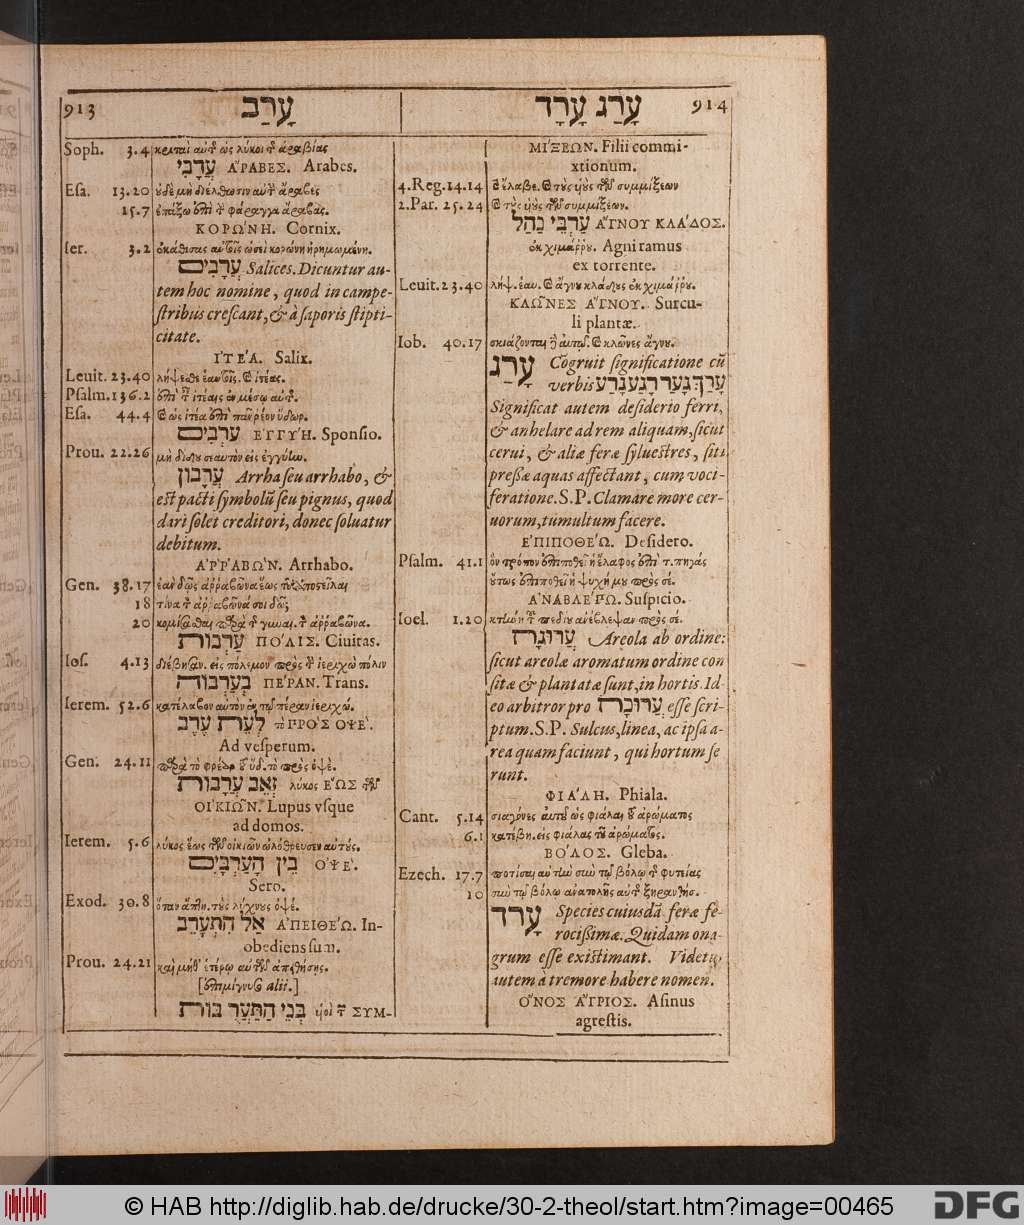 913 עָרַב
Soph. 3.4 κριταὶ αὐτῆς ὡς λύκοι τῆς ἀραβίας
עֲרָבִי ἌΡΑΒΕΣ. Arabes.
Esa. 13.20 οὐδὲ μὴ διέλθωσιν αὐτὴν ἄραβες
15.7 ἐπάξω ἐπὶ τὴν φάραγγα ἄραβας.
ΚΟΡΩΝΗ. Cornix.
Ier. 3.2 ἐκάθισας αὐτοῖς ὡσεὶ κορώνη ἠρημωμένη.
עֲרָבִים Salices. Dicuntur au-
tem hoc nomine, quod in campe-
stribus crescant, & à saporis stipti-
citate.
ἸΤΈΑ. Salix.
Leuit. 23.40 λήψεσθε ἑαυτοῖς. καὶ ἰτέας.
Psalm. 136.2 ἐπὶ ταῖς ἰτέαις ἐν μέσῳ αὐτῆς.
Esa. 44.4 καὶ ὡς ἰτέα ἐπὶ παραρρέον ὕδωρ.
עֹרְבִים ἘΓΓΎΗ. Sponsio.
Prou. 22.26 μὴ δίδου σεαυτὸν εἰς ἐγγύην.
עֲרָבוֹן Arrha seu arrhabo, &
est pacti symbolũ seu pignus, quod
dari solet creditori, donec soluatur
debitum.
ἈΡΡΑΒΏΝ. Arrhabo.
Gen. 38.17 ἐὰν δῷς ἀρραβῶνα ἕως τοῦ ἀποστεῖλαι
18 τίνα τὸν ἀρραβῶνά σοι δῶ;
20 κομίσασθαι παρὰ τῆς γυναι. τὸν ἀρραβῶνα.
עָרְבוֹת ΠΌΛΙΣ. Ciuitas.
Ios. 4.13 διέβησαν. εἰς πόλεμον πρὸς τὴν ἱεριχὼ πόλιν
בְעַרְבוֹת ΠΈΡΑΝ. Trans.
Ierem. 52.6 κατέλαβον αὐτὸν ἐν τῷ πέραν ἱεριχώ.
לְעֵת עֶרֶב τὸ ΠΡῸΣ ὈΨΈ.
Ad vesperum.
Gen. 24.11 παρὰ τὸ φρέαρ τοῦ ὕδ. τὸ πρὸς ὀψὲ.
זְאֵב עֲרָבוֹת λύκος ἝΩΣ τῶν
ΟἸΚΙΩ͂Ν. Lupus vsque
ad domos.
Ierem. 5.6 λύκος ἕως τῶν οἰκιῶν ὠλόθρευσεν αὐτούς.
בֵין הָעַרְבָּיִם ὈΨΈ.
Sero.
Exod. 30.8 ὅταν ἅπτῃ. τοὺς λύχνους ὀψέ.
אַל תִתְעָרֵב ἈΠΕΙΘΈΩ. In-
obediens sum.
Prou. 24.21 καὶ μηθ' ἑτέρῳ αὐτῶν ἀπειθήσῃς.
[ἐπιμίγνυσο alii.]
בְּנֵי הַתַּעֲרֻבוֹת υἱοὶ τῶν ΣΥΜ-
עָרַג עָרָד 914
ΜΊΞΕΩΝ. Filii commi-
xtionum.
4.Reg. 14.14 καὶ ἔλαβε. καὶ τοὺς υἱοὺς τῶν συμμίξεων
2.Par. 25.24 καὶ τοὺς υἱοὺς τῶν συμμίξεων.
עַרְבֵי נַחַל ἌΓΝΟΥ ΚΛΆΔΟΣ.
ἐκ χιμάρρου. Agni ramus
ex torrente.
Leuit. 23.40 λήψ. ἑαυ. καὶ ἄγνου κλάδους ἐκ χιμάρρου.
ΚΛΩ͂ΝΕΣ ἌΓΝΟΥ. Surcu-
li plantæ.
Iob. 40.17 σκιάζονται δὲ αὐτῷ. καὶ κλῶνες ἄγνου.
עָרַג Cõgruit significatione cũ
verbis עָרַךְ גָעַר רָגַע גָרַע
Significat autem desiderio ferri,
& anhelare ad rem aliquam, sicut
cerui, & aliæ feræ syluestres, siti
pressæ aquas affectant, cum voci-
feratione. S.P. Clamare more cer-
uorum, tumultum facere.
ἘΠΙΠΟΘΈΩ. Desidero.
Psalm. 41.1 ὃν τρόπον ἐπιποθεῖ ἡ ἔλαφος ἐπὶ τ. πηγάς
οὕτως ἐπιποθεῖ ἡ ψυχή μου πρὸς σέ.
ἈΝΑΒΛΈΠΩ. Suspicio.
Ioel. 1.20 κτήνη τοῦ πεδίου ἀνέβλεψαν πρὸς σέ.
עֲרוּגָה Areola ab ordine:
sicut areolæ aromatum ordine con
sitæ & plantatæ sunt, in hortis. Id-
eo arbitror pro עֲרוּכָה esse scri-
ptum. S.P. Sulcus, linea, ac ipsa a-
rea quam faciunt, qui hortum se
runt.
ΦΙΆΛΗ. Phiala.
Cant. 5.14 σιαγόνες αὐτοῦ ὡς φιάλαι τοῦ ἀρώματος
6.1 κατέβη. εἰς φιάλας τοῦ ἀρώματος.
ΒΌΛΟΣ. Gleba.
Ezech. 17.7 ποτίσαι αὐτὴν σὺν τῷ βόλῳ τῆς φυτείας
10 σὺν τῷ βόλῳ ἀνατολῆς αὐτῆς ξηρανθήσ.
עָרֹד Species cuiusdã feræ fe-
rocissimæ. Quidam ona-
grum esse existimant. Videtur
autem a tremore habere nomen.
ὌΝΟΣ ἌΓΡΙΟΣ. Asinus
agrestis.
© HAB http://diglib.hab.de/drucke/30-2-theol/start.htm?image=00465
DFG